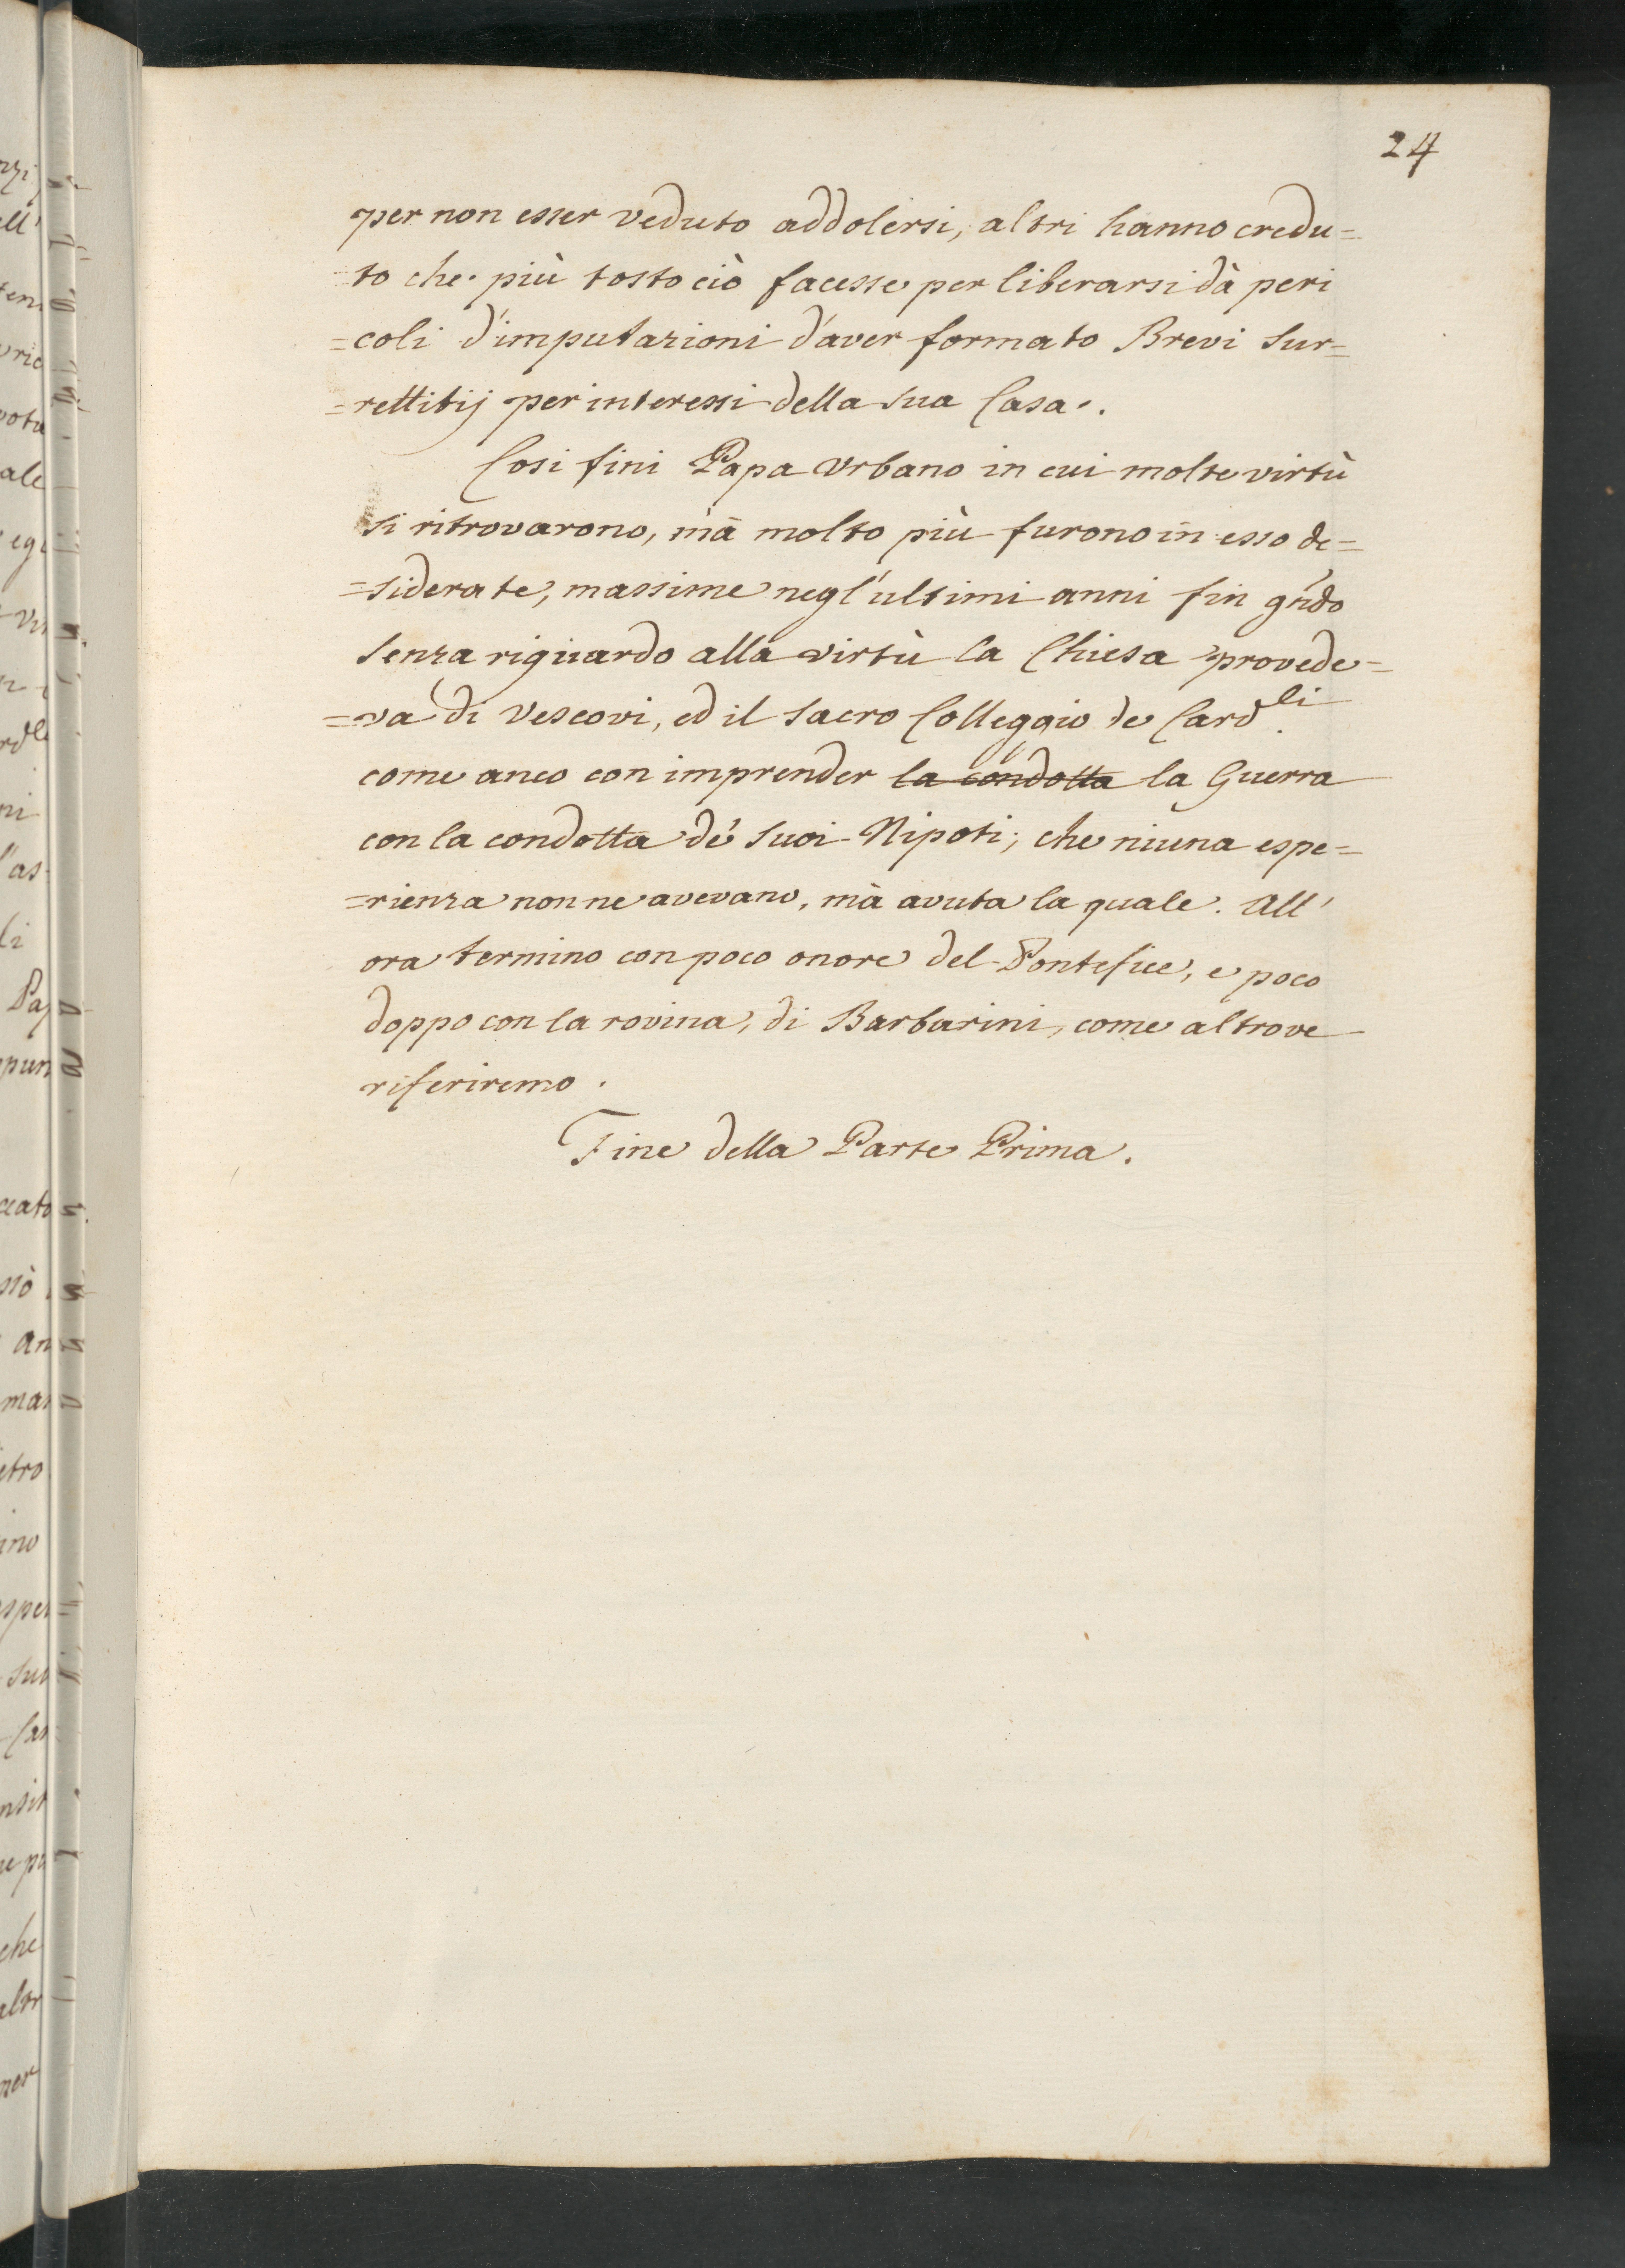 24
per non esser veduto addolersi, altri hanno credu=
=to che più tosto ciò facesse per liberarsi dà peri
=coli d'imputazioni d'aver formato Brevi Sur=
=rettitij per interessi della sua Casa.
Cosi fini Papa Vrbano in cui molte virtù
si ritrovarono, mà molto più furono in esso de=
=siderate, massime negl'ultimi anni fin gñdo
senza riguardo alla virtù la Chiesa provede=
=va di Vescovi, ed il Sacro Colleggio de Card.li
come anco con imprender la condotta la Guerra
con la condotta dé suoi Nipoti; che niuna espe=
=rienza non ne avevano, mà avuta la quale. All'
ora termino con poco onore del Pontefice, e poco
doppo con la rovina, di Barbarini, come altrove
riferiremo.
Fine della Parte Prima.